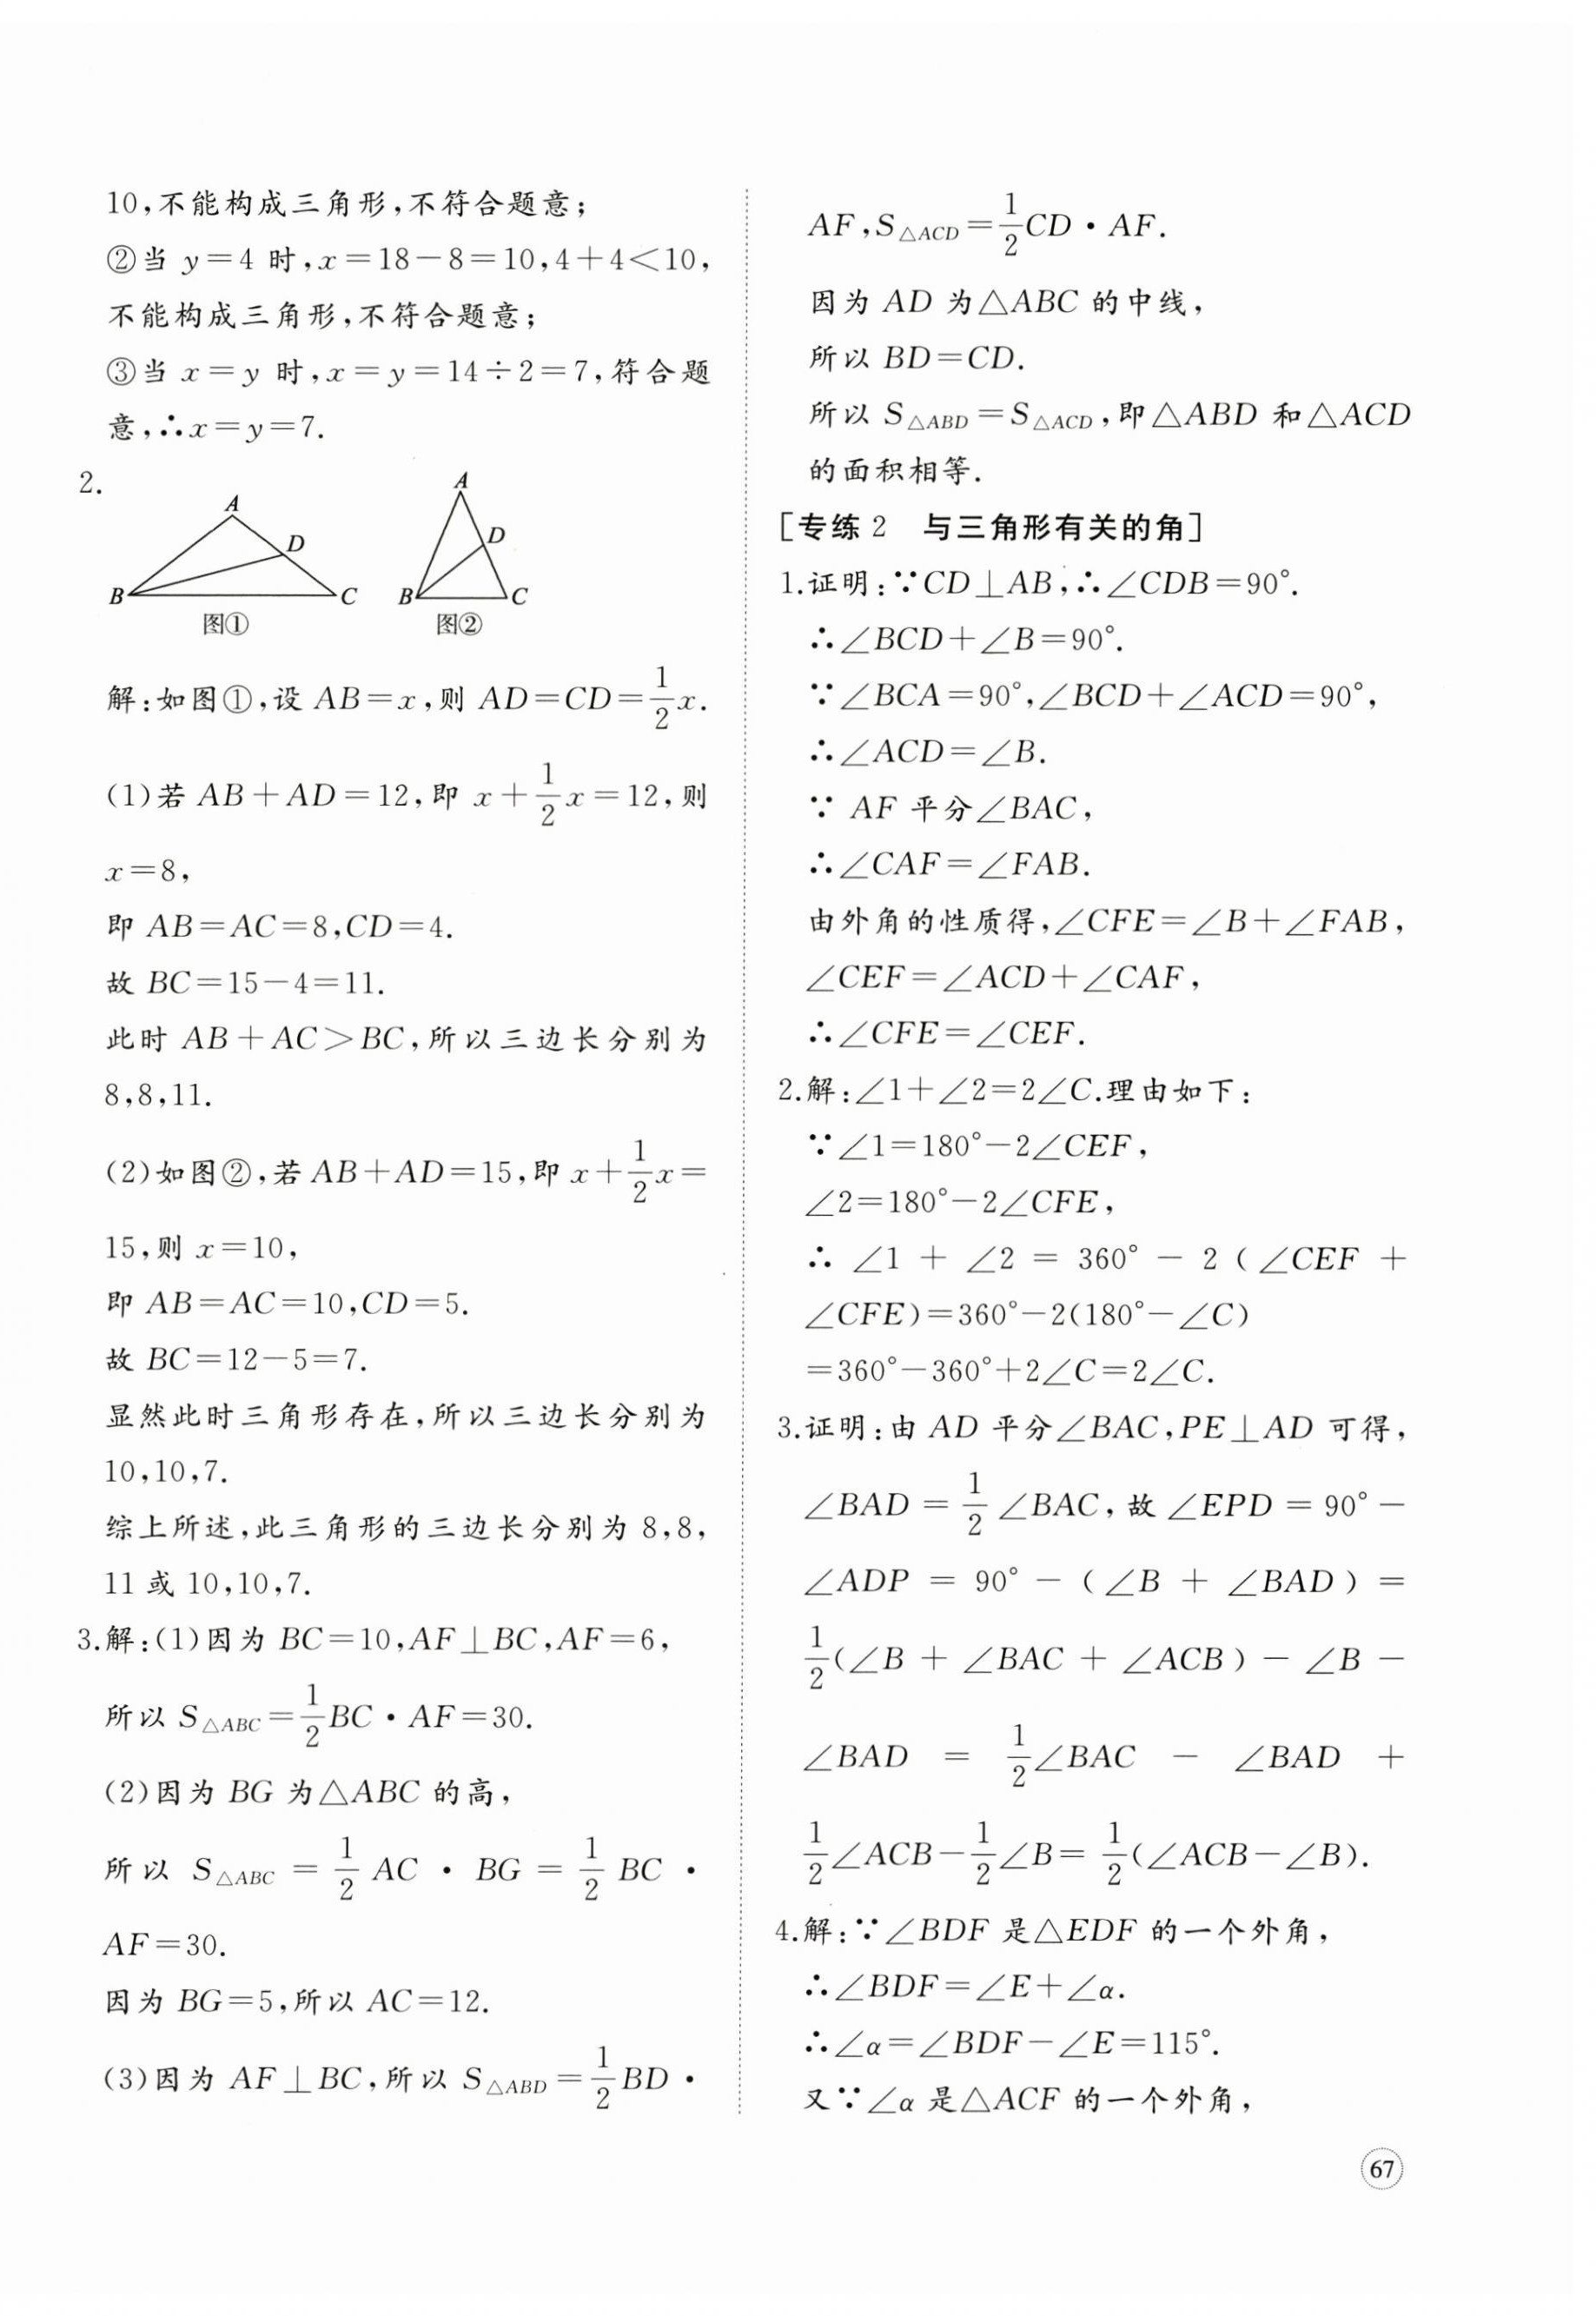 10,不能构成三角形,不符合题意;
②当 y=4 时,x=18-8=10,4+4<10,
不能构成三角形,不符合题意;
③当 x=y 时,x=y=14÷2=7,符合题
意,∴x=y=7.
2.
A
D
B
C
图①
A
D
B
C
图②
解:如图①,设 AB=x,则 AD=CD=\frac{1}{2}x.
(1)若 AB+AD=12,即 x+\frac{1}{2}x=12,则
x=8,
即 AB=AC=8,CD=4.
故 BC=15-4=11.
此时 AB+AC>BC,所以三边长分别为
8,8,11.
(2)如图②,若 AB+AD=15,即 x+\frac{1}{2}x=
15,则 x=10,
即 AB=AC=10,CD=5.
故 BC=12-5=7.
显然此时三角形存在,所以三边长分别为
10,10,7.
综上所述,此三角形的三边长分别为 8,8,
11 或 10,10,7.
3.解:(1)因为 BC=10,AF⊥BC,AF=6,
所以 S△ABC=\frac{1}{2}BC·AF=30.
(2)因为 BG 为△ABC 的高,
所以 S△ABC=\frac{1}{2}AC·BG=\frac{1}{2}BC·
AF=30.
因为 BG=5,所以 AC=12.
(3)因为 AF⊥BC,所以 S△ABD=\frac{1}{2}BD·
AF,S△ACD=\frac{1}{2}CD·AF.
因为 AD 为△ABC 的中线,
所以 BD=CD.
所以 S△ABD=S△ACD,即△ABD 和△ACD
的面积相等.
[专练2 与三角形有关的角]
1.证明:∵CD⊥AB,∴∠CDB=90°.
∴∠BCD+∠B=90°.
∵∠BCA=90°,∠BCD+∠ACD=90°,
∴∠ACD=∠B.
∵ AF 平分∠BAC,
∴∠CAF=∠FAB.
由外角的性质得,∠CFE=∠B+∠FAB,
∠CEF=∠ACD+∠CAF,
∴∠CFE=∠CEF.
2.解:∠1+∠2=2∠C.理由如下:
∵∠1=180°-2∠CEF,
∠2=180°-2∠CFE,
∴ ∠1 + ∠2 = 360° - 2(∠CEF +
∠CFE)=360°-2(180°-∠C)
=360°-360°+2∠C=2∠C.
3.证明:由 AD 平分∠BAC,PE⊥AD 可得,
∠BAD=\frac{1}{2}∠BAC,故∠EPD=90°-
∠ADP = 90° - (∠B + ∠BAD) =
\frac{1}{2}(∠B + ∠BAC + ∠ACB) - ∠B -
∠BAD = \frac{1}{2}∠BAC - ∠BAD +
\frac{1}{2}∠ACB-\frac{1}{2}∠B=\frac{1}{2}(∠ACB-∠B).
4.解:∵∠BDF 是△EDF 的一个外角,
∴∠BDF=∠E+∠α.
∴∠α=∠BDF-∠E=115°.
又∵∠α 是△ACF 的一个外角,
67